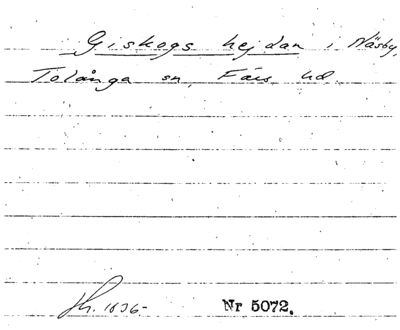 Giskogs hejdan i Näsby,
Tolånga sn, Färs hd.
Nr 5072.